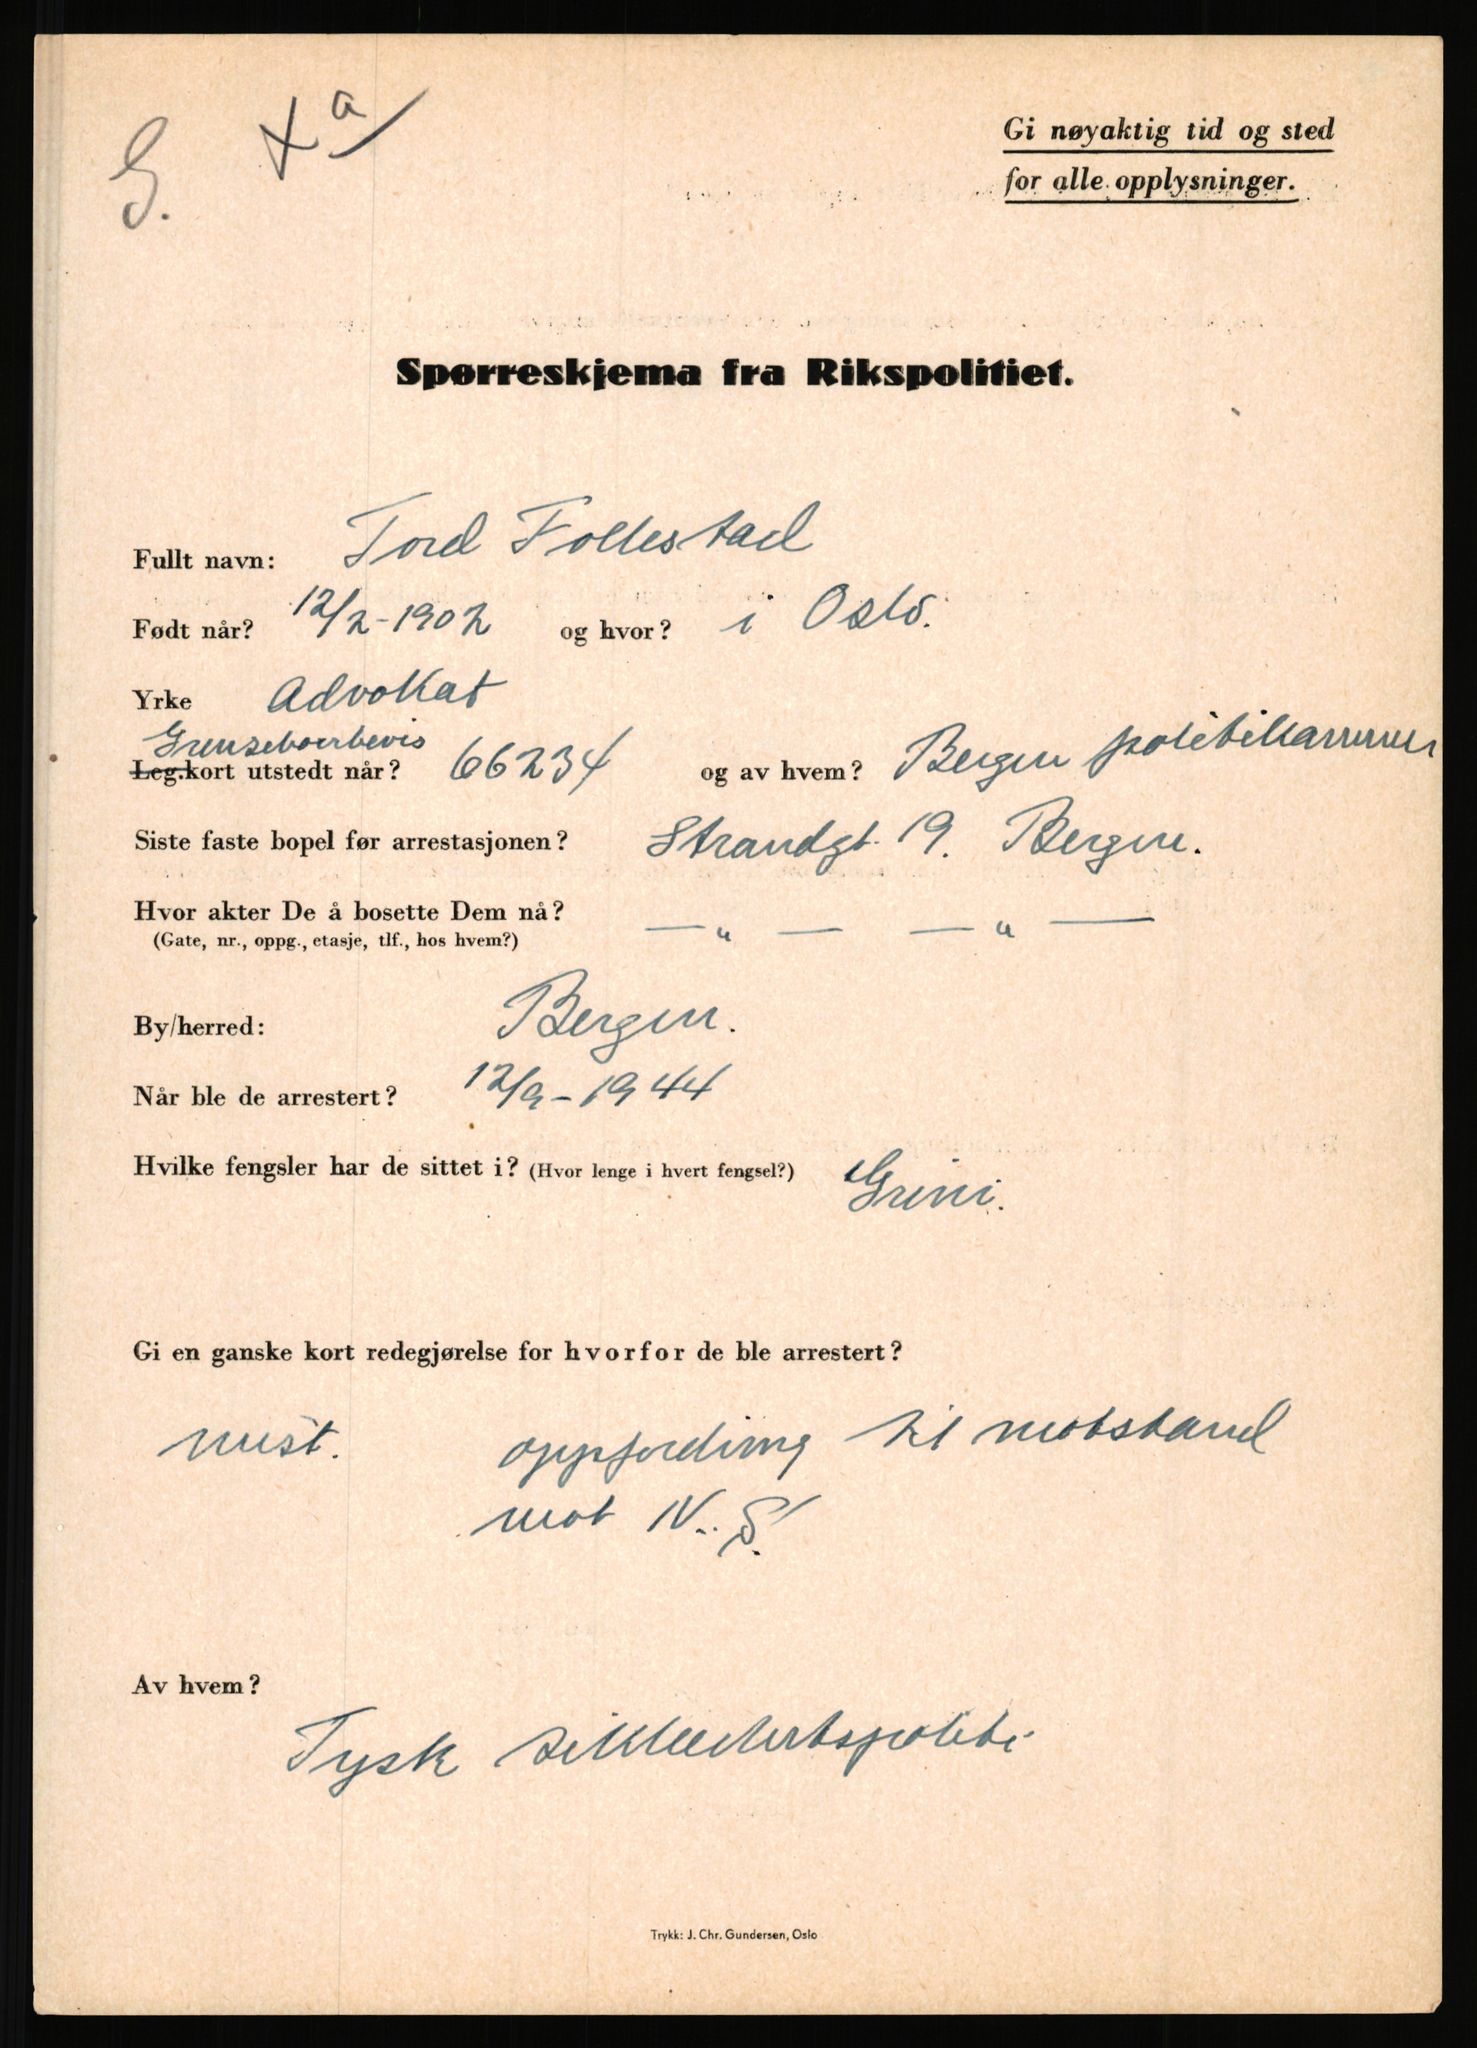 G. xa
Gi nøyaktig tid og sted
for alle opplysninger.
Spørreskjema fra Rikspolitiet.
Fullt navn: Tord Follestad
Født når? 12/2-1902 og hvor? i Oslo.
Yrke Advokat
Grenseboerbevis
Leg.kort utstedt når? 66234 og av hvem? Bergen politikammer
Siste faste bopel før arrestasjonen? Strandgt. 19. Bergen.
Hvor akter De å bosette Dem nå? — " — — " —
(Gate, nr., oppg., etasje, tlf., hos hvem?)
By/herred: Bergen.
Når ble de arrestert? 12/9-1944
Hvilke fengsler har de sittet i? (Hvor lenge i hvert fengsel?) Grini.
Gi en ganske kort redegjørelse for hvorfor de ble arrestert?
mist. oppfordring til motstand
mot N.S.
Av hvem?
Tysk sikkerhetspoliti
Trykk: J. Chr. Gundersen, Oslo